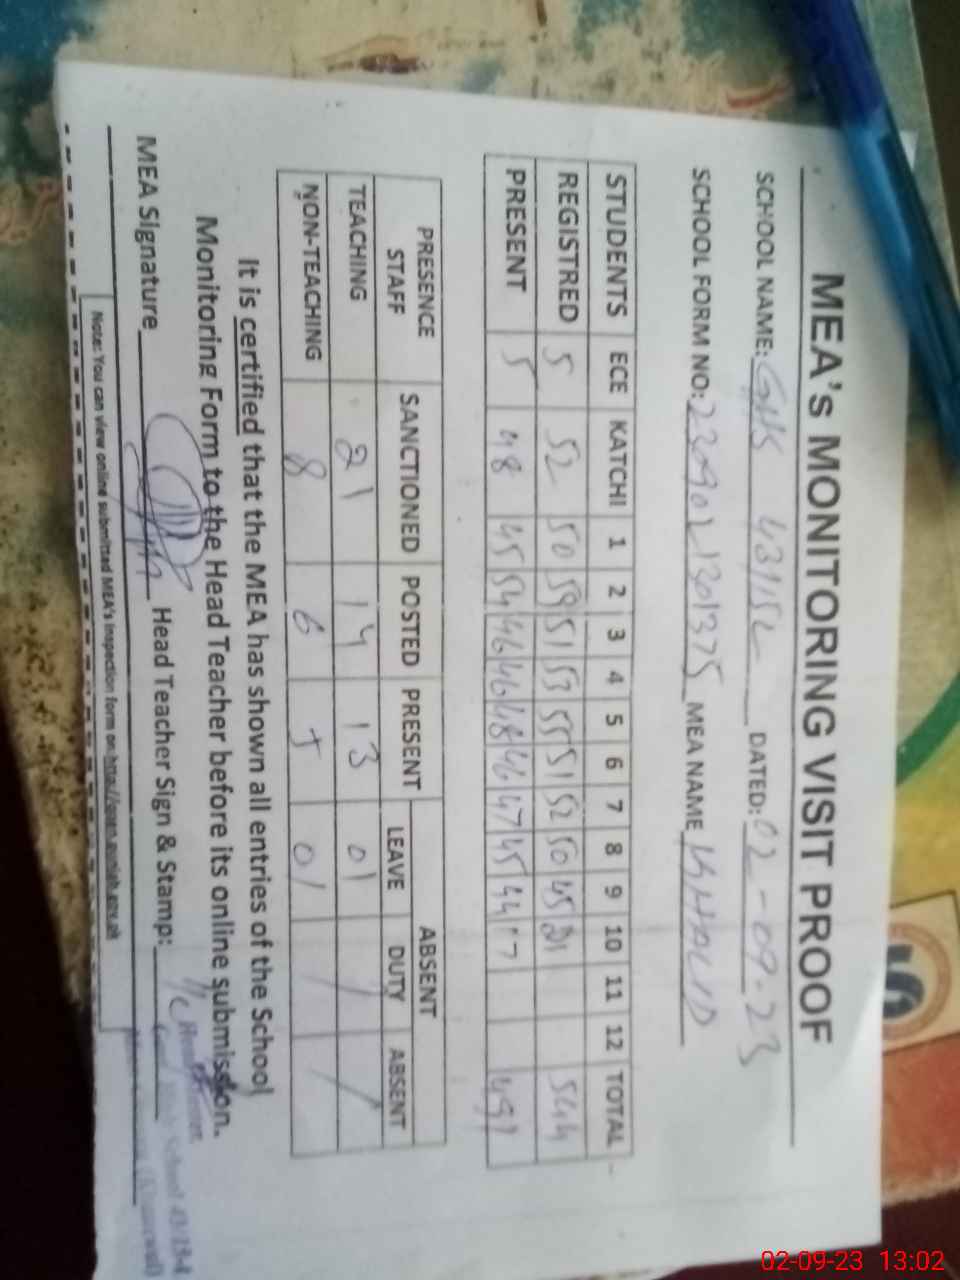 MEA's MONITORING VISIT PROOF
SCHOOL NAME: GHS 43/15L DATED: 02-09-23
SCHOOL FORM NO: MEA NAME KHALID
STUDENTS ECE KATCHI 1 2 3 4 5 6 7 8 9 10 11 12 TOTAL
REGISTRED 5 52 50 59 51 53 55 51 52 50 45 21 544
PRESENT 5 48 45 54 46 46 48 46 47 45 44 17 491
PRESENCE STAFF SANCTIONED POSTED PRESENT ABSENT
LEAVE DUTY ABSENT
TEACHING 21 14 13 01 /
NON-TEACHING 8 6 5 01 / /
It is certified that the MEA has shown all entries of the School
Monitoring Form to the Head Teacher before its online submission.
MEA Signature Head Teacher Sign & Stamp:
Note: You can view online submitted MEA's inspection form on: http://open.punjab.gov.pk
02-09-23 13:02